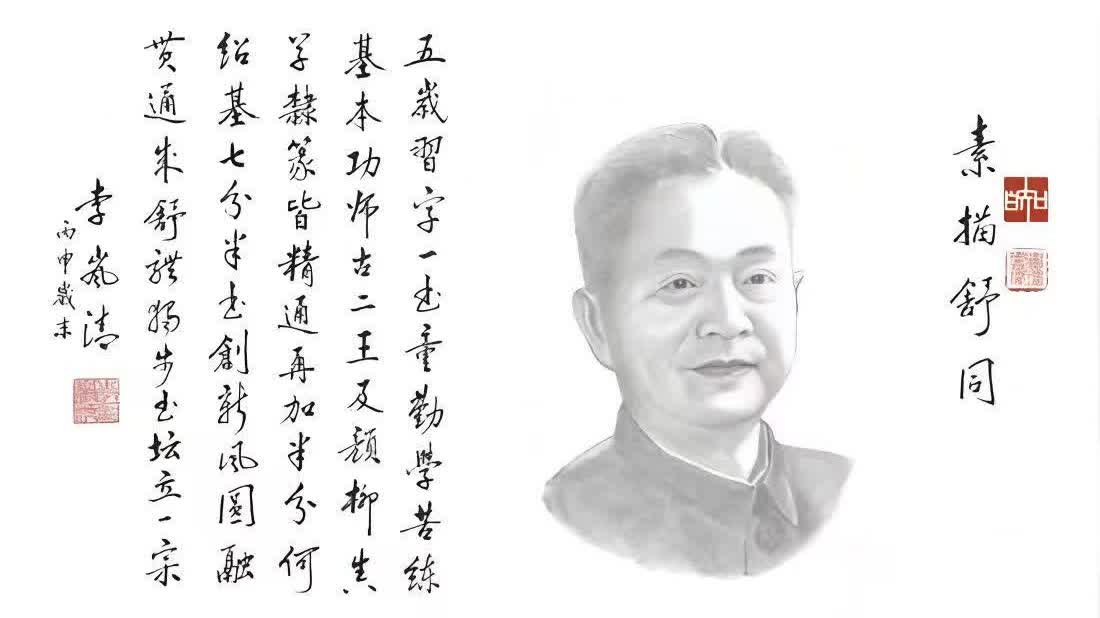 素描舒同
五歲習字一书童勤學苦練
基本功师古二王及颜柳真
草隸篆皆精通再加半分何
绍基七分半书創新风圓融
贯通成舒體獨步书坛立一宗
李岚清
丙申歲末